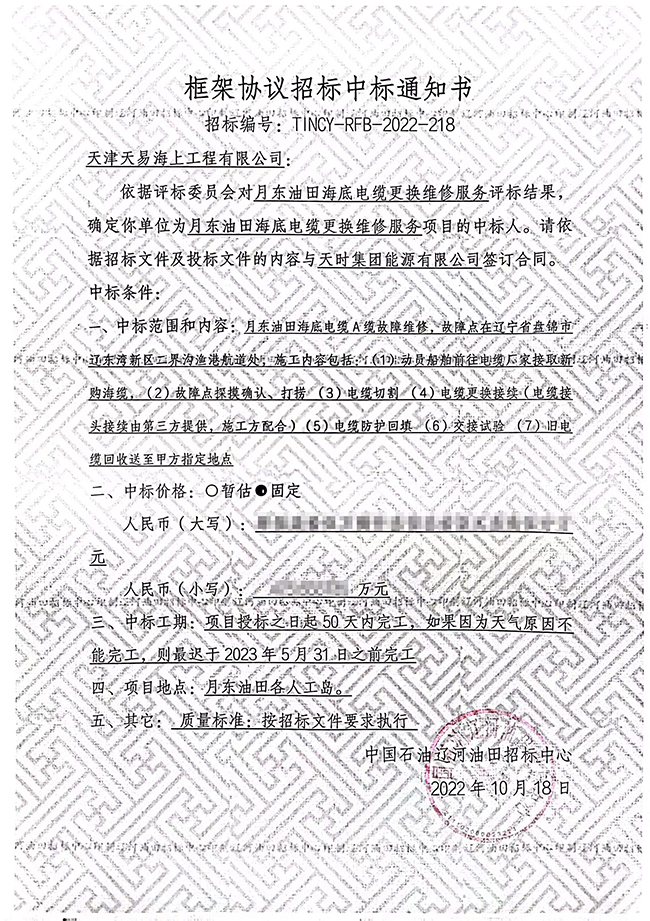 框架协议招标中标通知书
招标编号：TINCY-RFB-2022-218
天津天易海上工程有限公司：
依据评标委员会对月东油田海底电缆更换维修服务评标结果，
确定你单位为月东油田海底电缆更换维修服务项目的中标人。请依
据招标文件及投标文件的内容与天时集团能源有限公司签订合同。
中标条件：
一、中标范围和内容：月东油田海底电缆A缆故障维修，故障点在辽宁省盘锦市
辽东湾新区二界沟渔港航道处；施工内容包括：（1）动员船舶前往电缆厂家接取新
购海缆，（2）故障点探摸确认、打捞 （3）电缆切割 （4）电缆更换接续（电缆接
头接续由第三方提供，施工方配合）（5）电缆防护回填 （6）交接试验 （7）旧电
缆回收送至甲方指定地点
二、中标价格：○暂估●固定
人民币（大写）：
元
人民币（小写）： 万元
三、中标工期：项目授标之日起50天内完工，如果因为天气原因不
能完工，则最迟于2023年5月31日之前完工
四、项目地点：月东油田各人工岛。
五、其它：质量标准：按招标文件要求执行
中国石油辽河油田招标中心
2022年10月18日